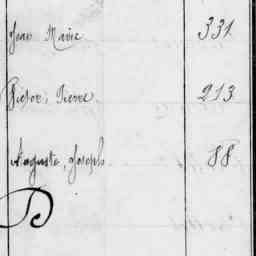 Jean Marie 331
Victor, Pierre 213
Auguste, Joseph 88
D